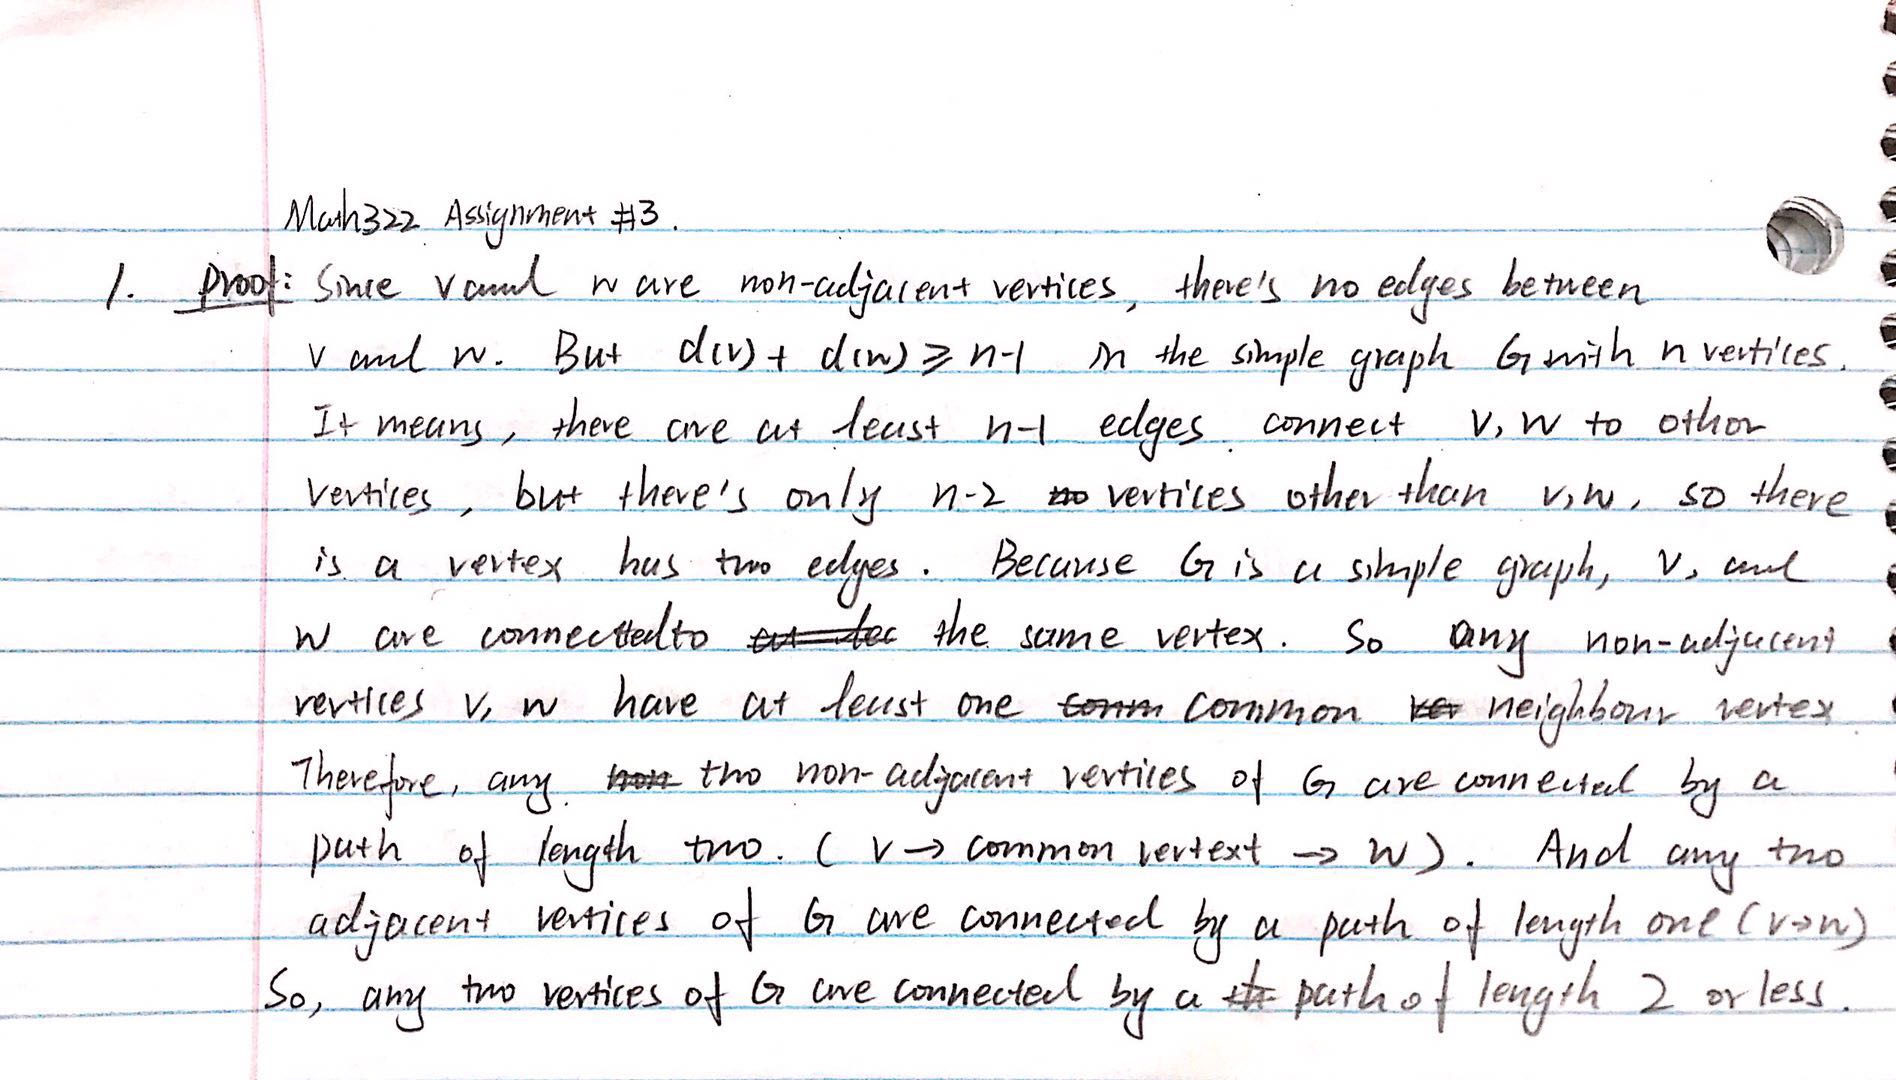 Math322 Assignment #3.
1. Proof: Since v and w are non-adjacent vertices, there's no edges between
v and w. But d(v) + d(w) ⩾ n-1 in the simple graph G with n vertices.
It means, there are at least n-1 edges connect v, w to other
vertices, but there's only n-2 vertices other than v, w, so there
is a vertex has two edges. Because G is a simple graph, v, and
w are connected to the same vertex. So any non-adjacent
vertices v, w have at least one common neighbour vertex
Therefore, any two non-adjacent vertices of G are connected by a
path of length two. (v → common vertext → w). And any two
adjacent vertices of G are connected by a path of length one (v→w)
So, any two vertices of G are connected by a path of length 2 or less.